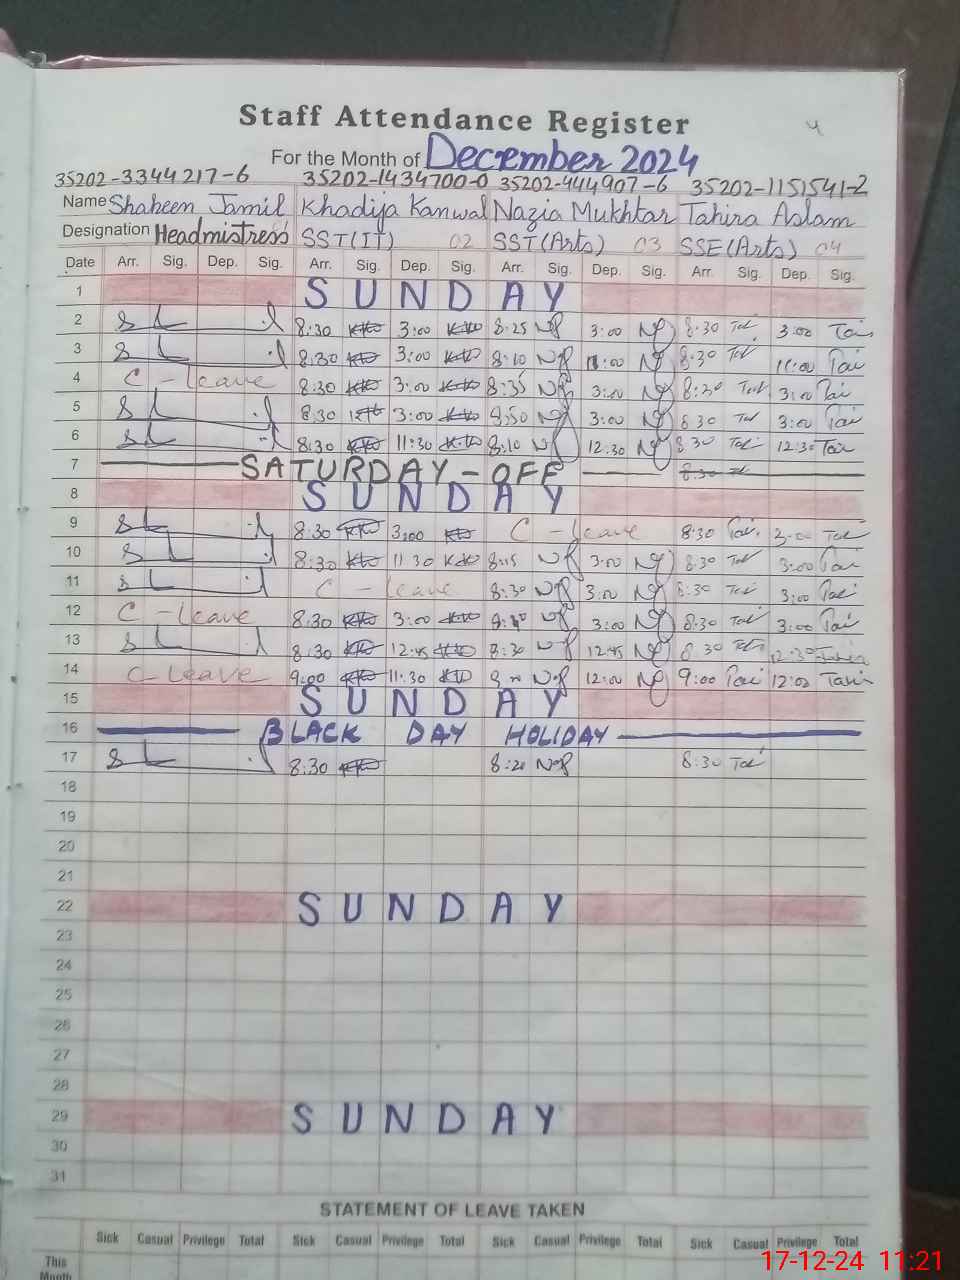 Staff Attendance Register
4
For the Month of December 2024
35202-3344217-6 35202-1434700-0 35202-444907-6 35202-1151541-2
Name Shaheen Jamil Khadija Kanwal Nazia Mukhtar Tahira Aslam
Designation Headmistress SST(IT) 02 SST(Arts) 03 SSE(Arts) 04
Date Arr. Sig. Dep. Sig. Arr. Sig. Dep. Sig. Arr. Sig. Dep. Sig. Arr. Sig. Dep. Sig.
1 SUNDAY
2 8:30 3:00 8:25 3:00 8:30 3:00
3 8:30 3:00 8:10 8:30 11:00
4 C-Leave 8:30 3:00 8:35 3:00 8:30 3:00
5 8:30 3:00 3:00 8:30 3:00
6 8:30 11:30 8:10 12:30 8:30 12:30
7 SATURDAY-OFF 8:30
8 SUNDAY
9 8:30 3:00 C-Leave 8:30 3:00
10 8:30 11:30 8:15 3:00 8:30 3:00
11 C-Leave 8:30 3:00 8:30 3:00
12 C-Leave 8:30 3:00 3:00 8:30 3:00
13 8:30 12:45 8:30 12:45 8:30 12:30
14 C-Leave 9:00 11:30 12:00 9:00 12:00
15 SUNDAY
16 BLACK DAY HOLIDAY
17 8:30 8:20 8:30
18
19
20
21
22 SUNDAY
23
24
25
26
27
28
29 SUNDAY
30
31
STATEMENT OF LEAVE TAKEN
Sick Casual Privilege Total Sick Casual Privilege Total Sick Casual Privilege Total Sick Casual Privilege Total
This
Month
17-12-24 11:21